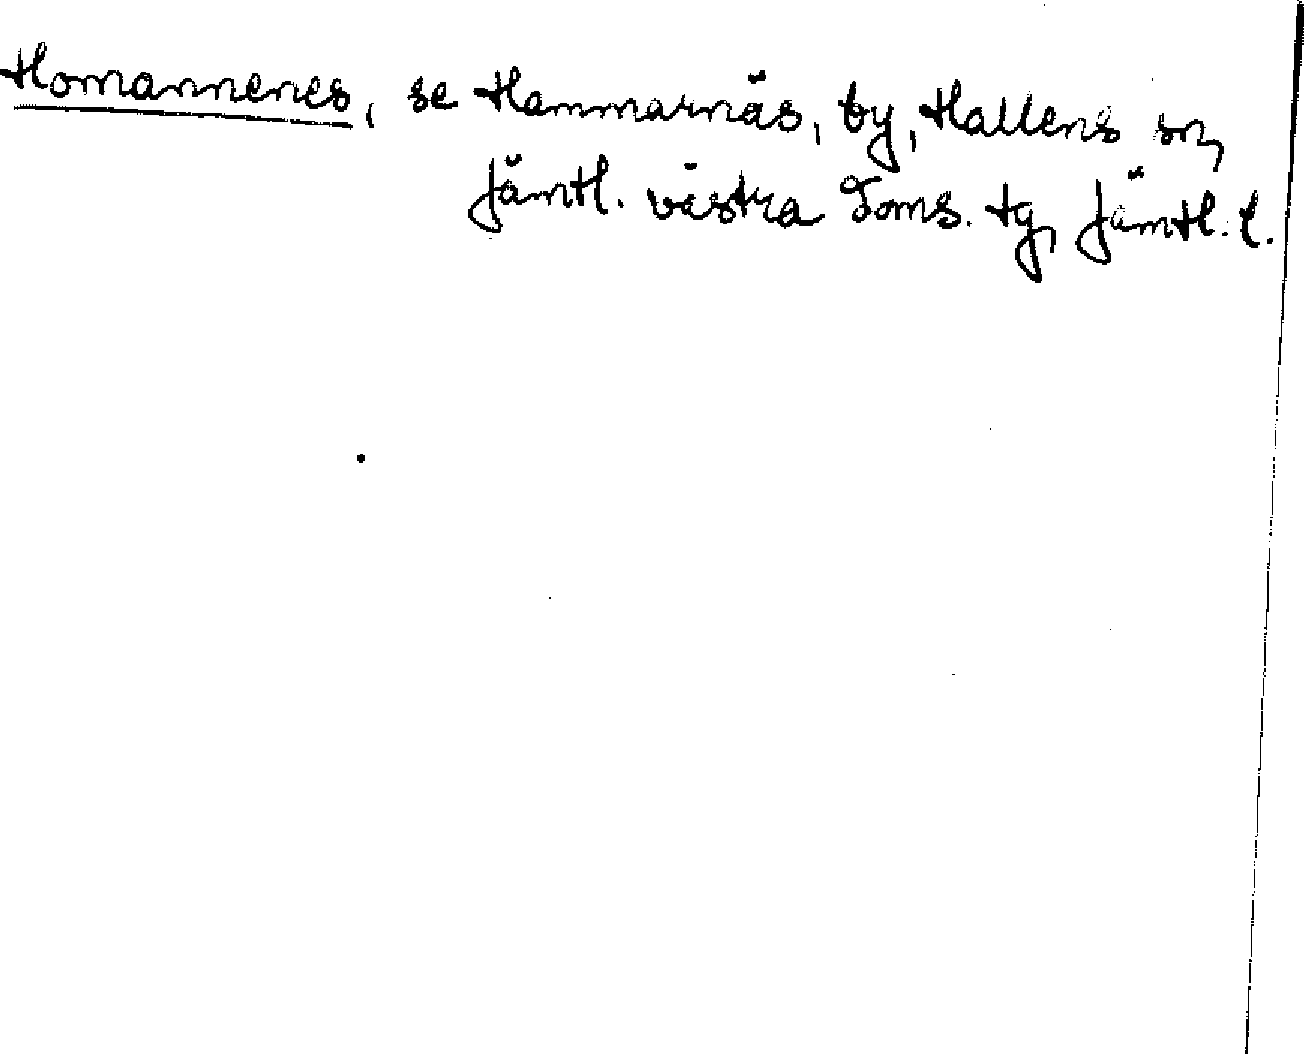 Homannenes, se Hammarnäs, by, Hallens sn,
Jämtl. västra Doms. tg, Jämtl. l.